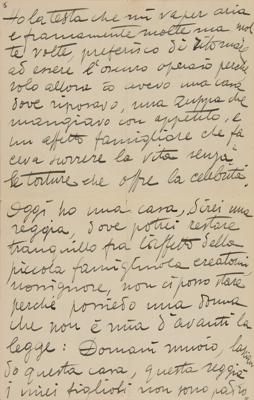 Ho la testa che mi va per aria
e francamente molte ma mol
te volte, preferisco di ritornare
ad essere l'oscuro operaio perchè
solo allora io avevo una casa
dove riposavo, una zuppa che
mangiavo con appetito, e
un affetto famigliare che fa
ceva scorrere la vita senza
le torture che offre la celebrità.
Oggi ho una casa, direi una
reggia, dove potrei restare
tranquillo fra l'affetto della
piccola famigliuola creatomi
nossignore, non ci posso stare
perchè possiedo una donna
che non è mia d'avanti la
legge: Domani muoio, lascian
do questa casa, questa reggia
i miei figlioli non sono padro